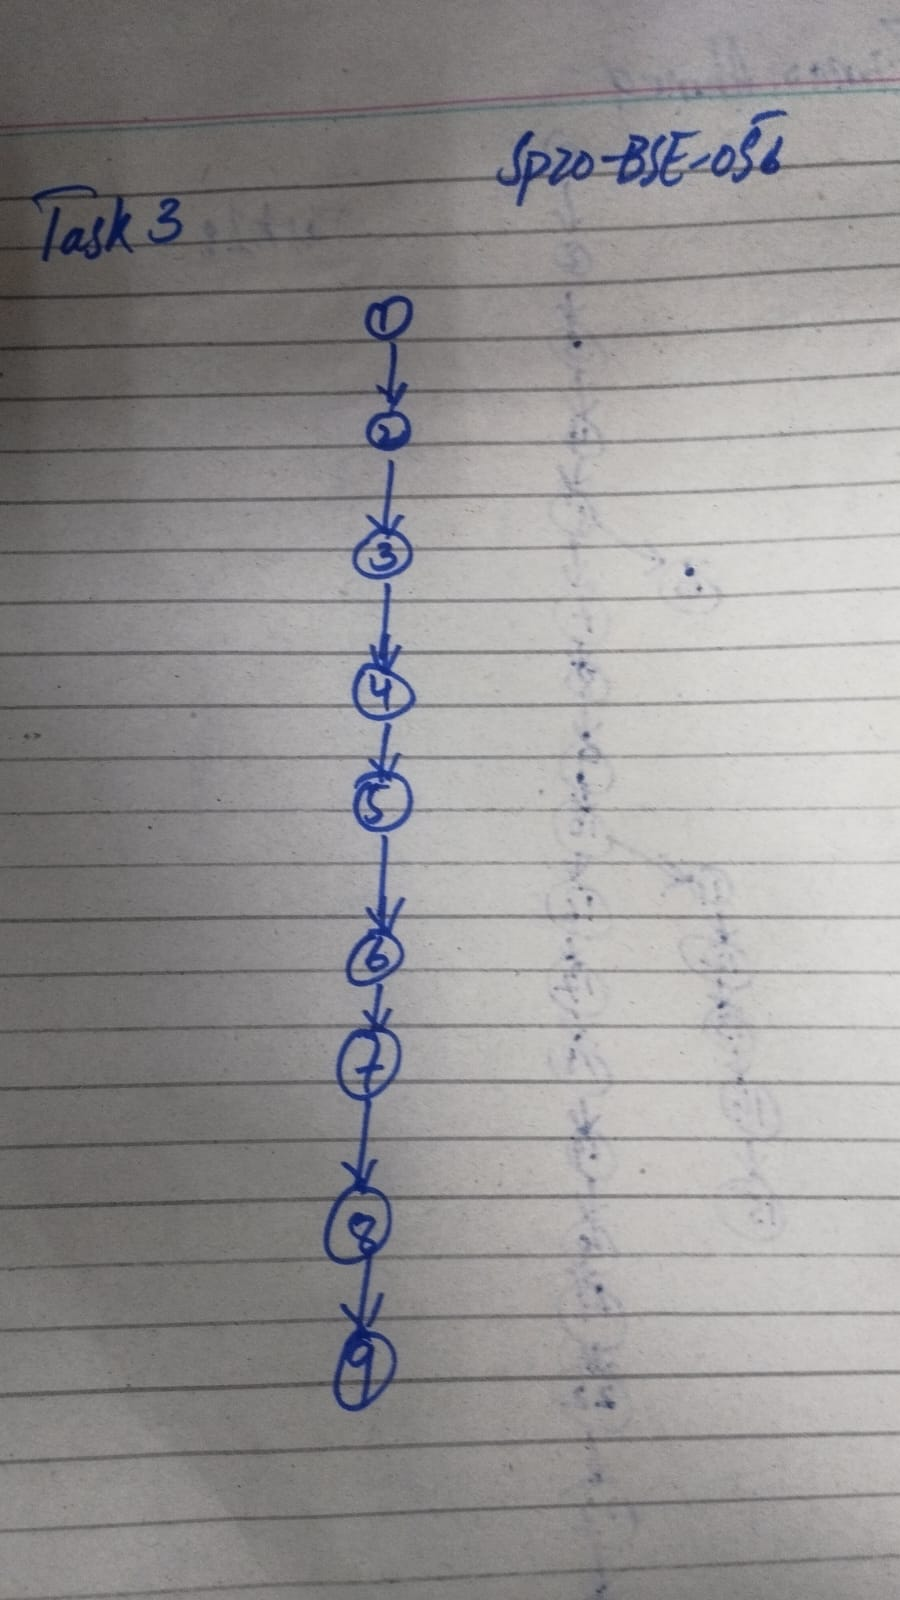 Sp20-BSE-056
Task 3
1
2
3
4
5
6
7
8
9